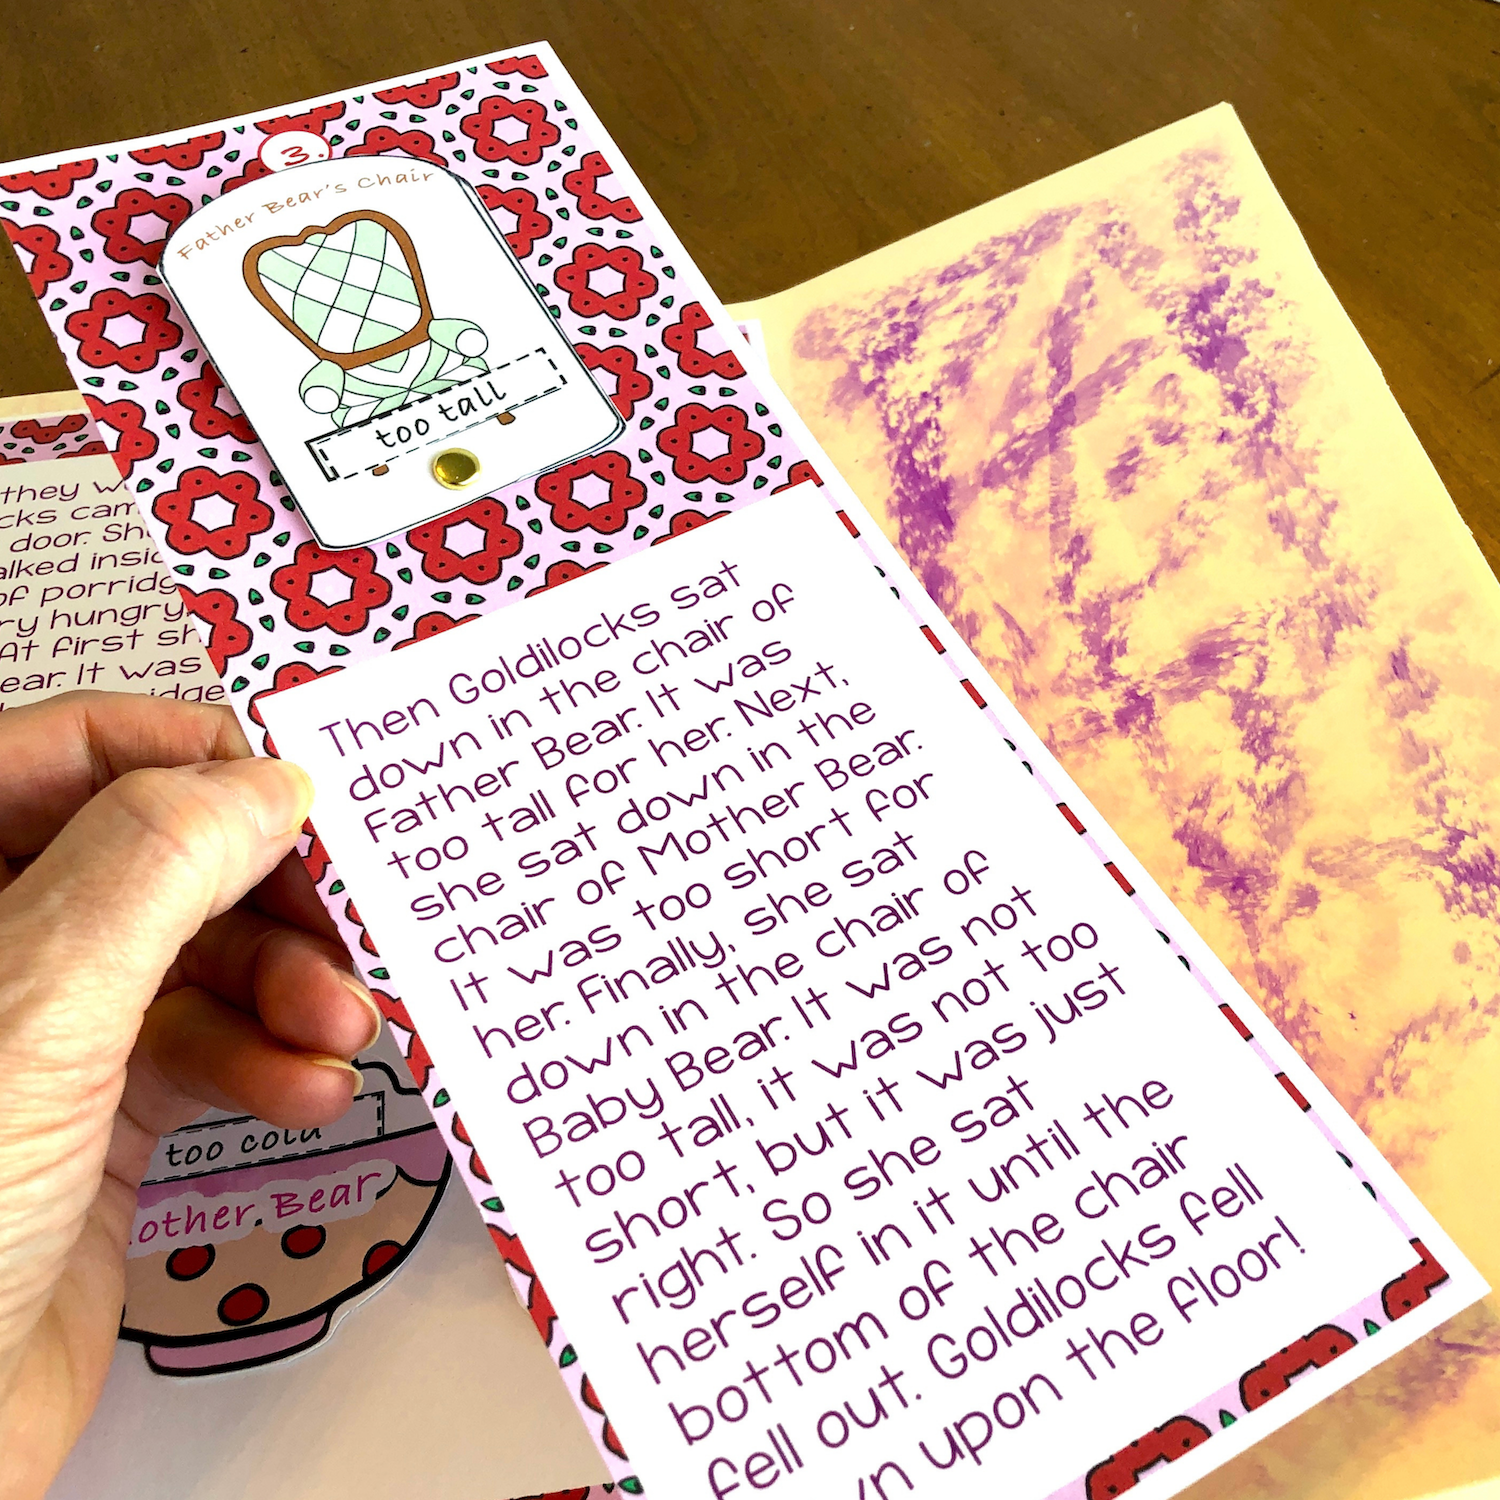 3.
Father Bear's Chair
too tall
Then Goldilocks sat
down in the chair of
Father Bear. It was
too tall for her. Next,
she sat down in the
chair of Mother Bear.
It was too short for
her. Finally, she sat
down in the chair of
Baby Bear. It was not
too tall, it was not too
short, but it was just
right. So she sat
herself in it until the
bottom of the chair
fell out. Goldilocks fell
upon the floor!
they
door.
of porridg
ry hungry.
At first sh
ear. It was
too cold
other Bear